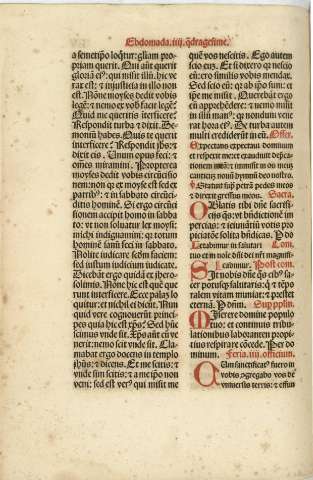 Ebdomada .iiij. q̄dragesime.
a semetip̄o loq̄tur: gliam pro-
priam querit. Qui aūt querit
gloriā eiꝰ: qui misit illū. hic ve-
rax est: ⁊ iniusticia in illo non
est. Nōne moyses dedit vobis
legē: ⁊ nemo ex vob̄ facit legē?
Quid me queritis interficere?
Respondit turba ⁊ dixit. De-
monium habes. Quis te querit
interficere? Respondit jhs: ⁊
dixit eis. Unum opus feci: ⁊
om̄es miramini. Propterea
moyses dedit vobis circūcisio
nem: non qꝫ ex moyse est sed ex
patribꝰ: ⁊ in sabbato circūci-
ditis hominē. Si ergo circūcisi
onem accipit homo in sabba
to: vt non soluatur lex moysi:
michi indignamini: qꝫ totum
hominē sanū feci in sabbato.
Nolite iudicare scd̄m faciem:
sed iustum iudicium iudicate.
Dicebāt ergo quidā ex ihero-
solimis. Nōne hic est quē que
runt interficere? Ecce palaȝ lo
quitur: et nichil ei dicūt. Nun
quid vere cognouerūt princi-
pes quia hic est xp̄s? Sed hūc
scimus vnde sit. Xp̄s aūt cū ve
nerit: nemo scit vnde sit. Cla-
mabat ergo docens in templo
jhūs: ⁊ dicens. Et me scitis: ⁊
vnde sim scitis: ⁊ a me ip̄o non
veni: sed est verꝰ qui misit me
quē vos nescitis. Ego autem
scio eū. Et si dixero qꝫ nescio
eū: ero similis vobis mendax.
Sed scio eū: qꝫ ab ip̄o sum: et
ip̄e me misit. Querebāt ergo
eū app̄rehēdere: ⁊ nemo misit
in illū manꝰ: qꝫ nondum vene
rat hora eiꝰ. De turba autem
multi crediderūt in eū. Offer.
Expectans expectaui dominum
et respexit me: et exaudiuit depca-
tionem meā: ⁊ immisit in os meū
canticū nouū hymnū deo nostro.
℣ Statuit sup̄ petrā pedes meos
et direxit gressus meos. Sacra.
Oblatis tibi dn̄e sacrifi-
ciis q̄s: vt bn̄dictionē im
percias: ⁊ ieiunātiū votis pro
piciatōe solita bn̄dicas. P̄ do
Letabimur in salutari Com.
tuo: et in noīe dn̄i dei nr̄i magnifi-
cabimur. Post com.
Sit nobis dn̄e q̄s cibꝰ sa-
cer potusqꝫ salutaris: q̄ ⁊ tēpo
ralem vitam muniat: et prestet
eternam. P̄ dn̄m. Sup̄ pp̄lm.
Miserere domine populo
tuo: et continuis tribu-
lationibus laborantem pro-
picius respirare cōcede. Per do
minum. Feria .iiij. officium.
Cum sanctificatꝰ fuero in
vobis: ɔgregabo vos de
vniuersis terris: ⁊ effun